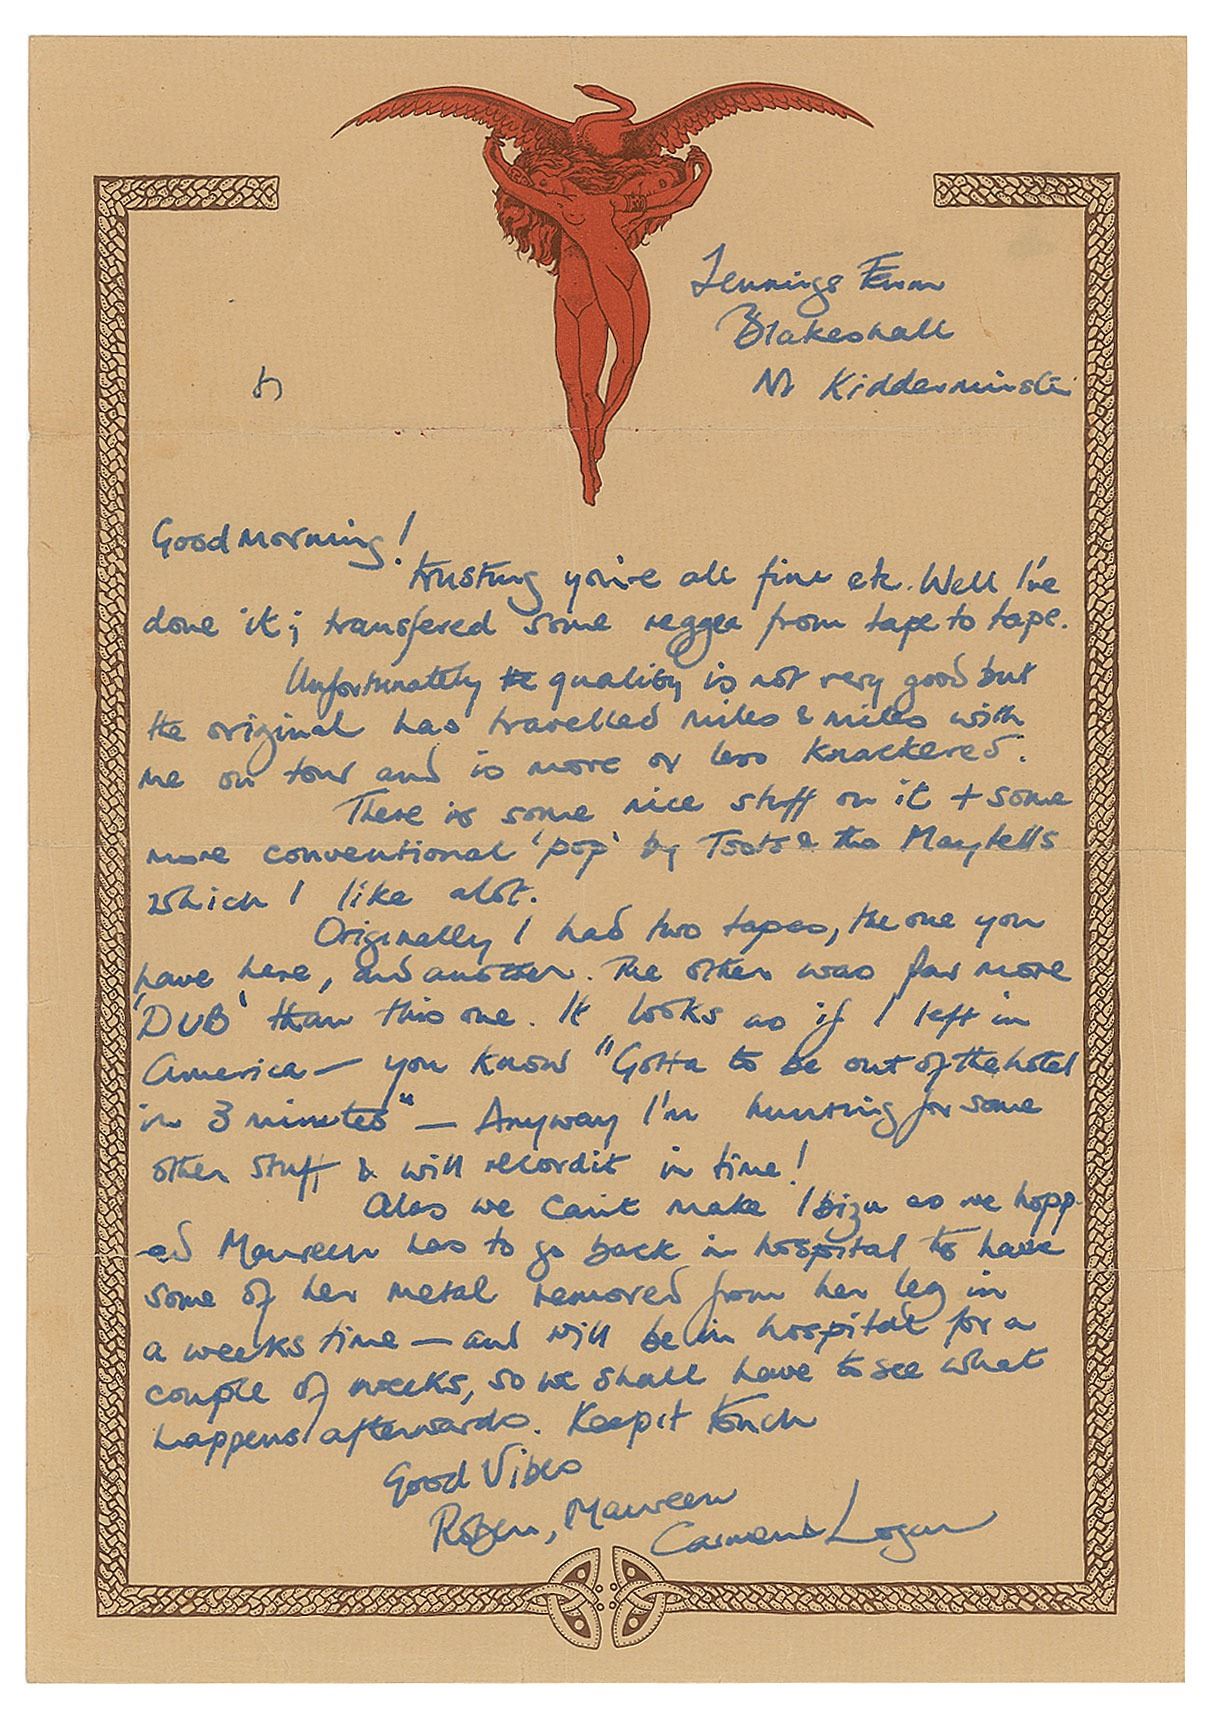 Jennings Farm
Blakeshall
Nr Kidderminster
Good Morning!
trusting you're all fine etc. Well I've
done it; transfered some reggea from tape to tape.
Unfortunately the quality is not very good but
the original has travelled miles & miles with
me on tour and is more or less knackered.
There is some nice stuff on it + some
more conventional 'pop' by Toots & the Maytells
which I like alot.
Originally I had two tapes, the one you
have here, and another. The other was far more
'DUB' than this one. It looks as if I left in
America — you know "Gotta to be out of the hotel
in 3 minutes" — Anyway I'm hunting for some
other stuff & will record it in time!
Alas we can't make Ibiza as we hopp-
ed Maureen has to go back in hospital to have
some of her metal removed from her leg in
a weeks time — and will be in hospital for a
couple of weeks, so we shall have to see what
happens afterwards. Keep it touch
Good Vibes
Robert, Maureen
Carmen & Logan